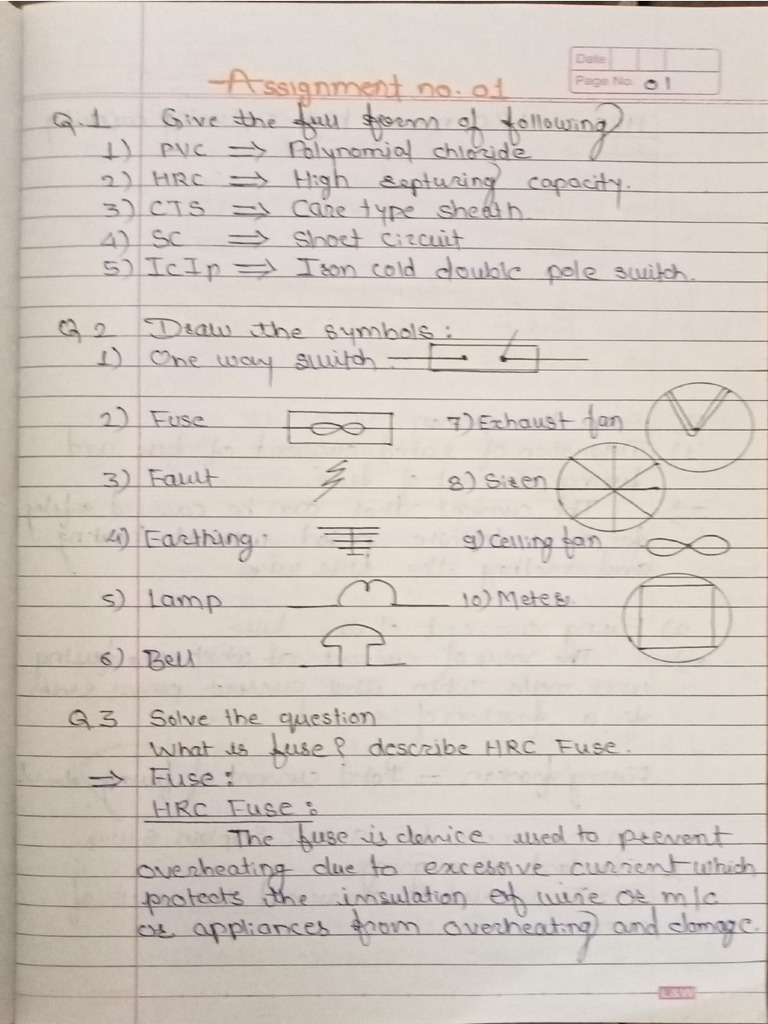 Date
Page No. 01
Assignment no. 01
Q.1 Give the full form of following
1) PVC ⇒ Polynomial chloride
2) HRC ⇒ High repturing capacity.
3) CTS ⇒ Care type sheath.
4) SC ⇒ Short circuit
5) IcIp ⇒ Iron cold double pole switch.
Q 2 Draw the symbols :
1) One way switch
2) Fuse 7) Exhaust fan
3) Fault 8) Siren
4) Earthing. 9) Celling fan
5) Lamp 10) Meter.
6) Bell
Q 3 Solve the question
What is fuse? describe HRC Fuse.
⇒ Fuse :
HRC Fuse :
The fuse is device used to prevent
overheating due to excessive current which
protects the insulation of wire or m/c
or appliances from overheating and damage.